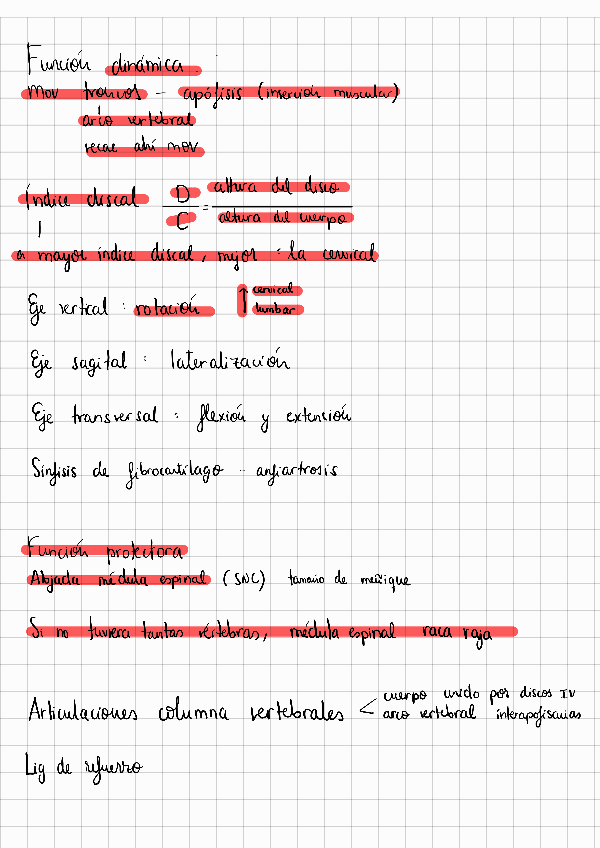 Función dinámica.
Mov troncos - apófisis (inserción muscular)
arco vertebral
recae ahí mov
Índice discal D/C = altura del disco / altura del cuerpo
a mayor índice discal, mejor : la cervical
Eje vertical : rotación ↑ cervical
lumbar
Eje sagital : lateralización
Eje transversal : flexión y extensión
Sínfisis de fibrocartílago - anfiartrosis
Función protectora
Alojada médula espinal (SNC) tamaño de meñique
Si no tuviera tantas vértebras, médula espinal raca raja
Articulaciones columna vertebrales < cuerpo unido por discos IV
arco vertebral interapofisiarias
Lig de refuerzo